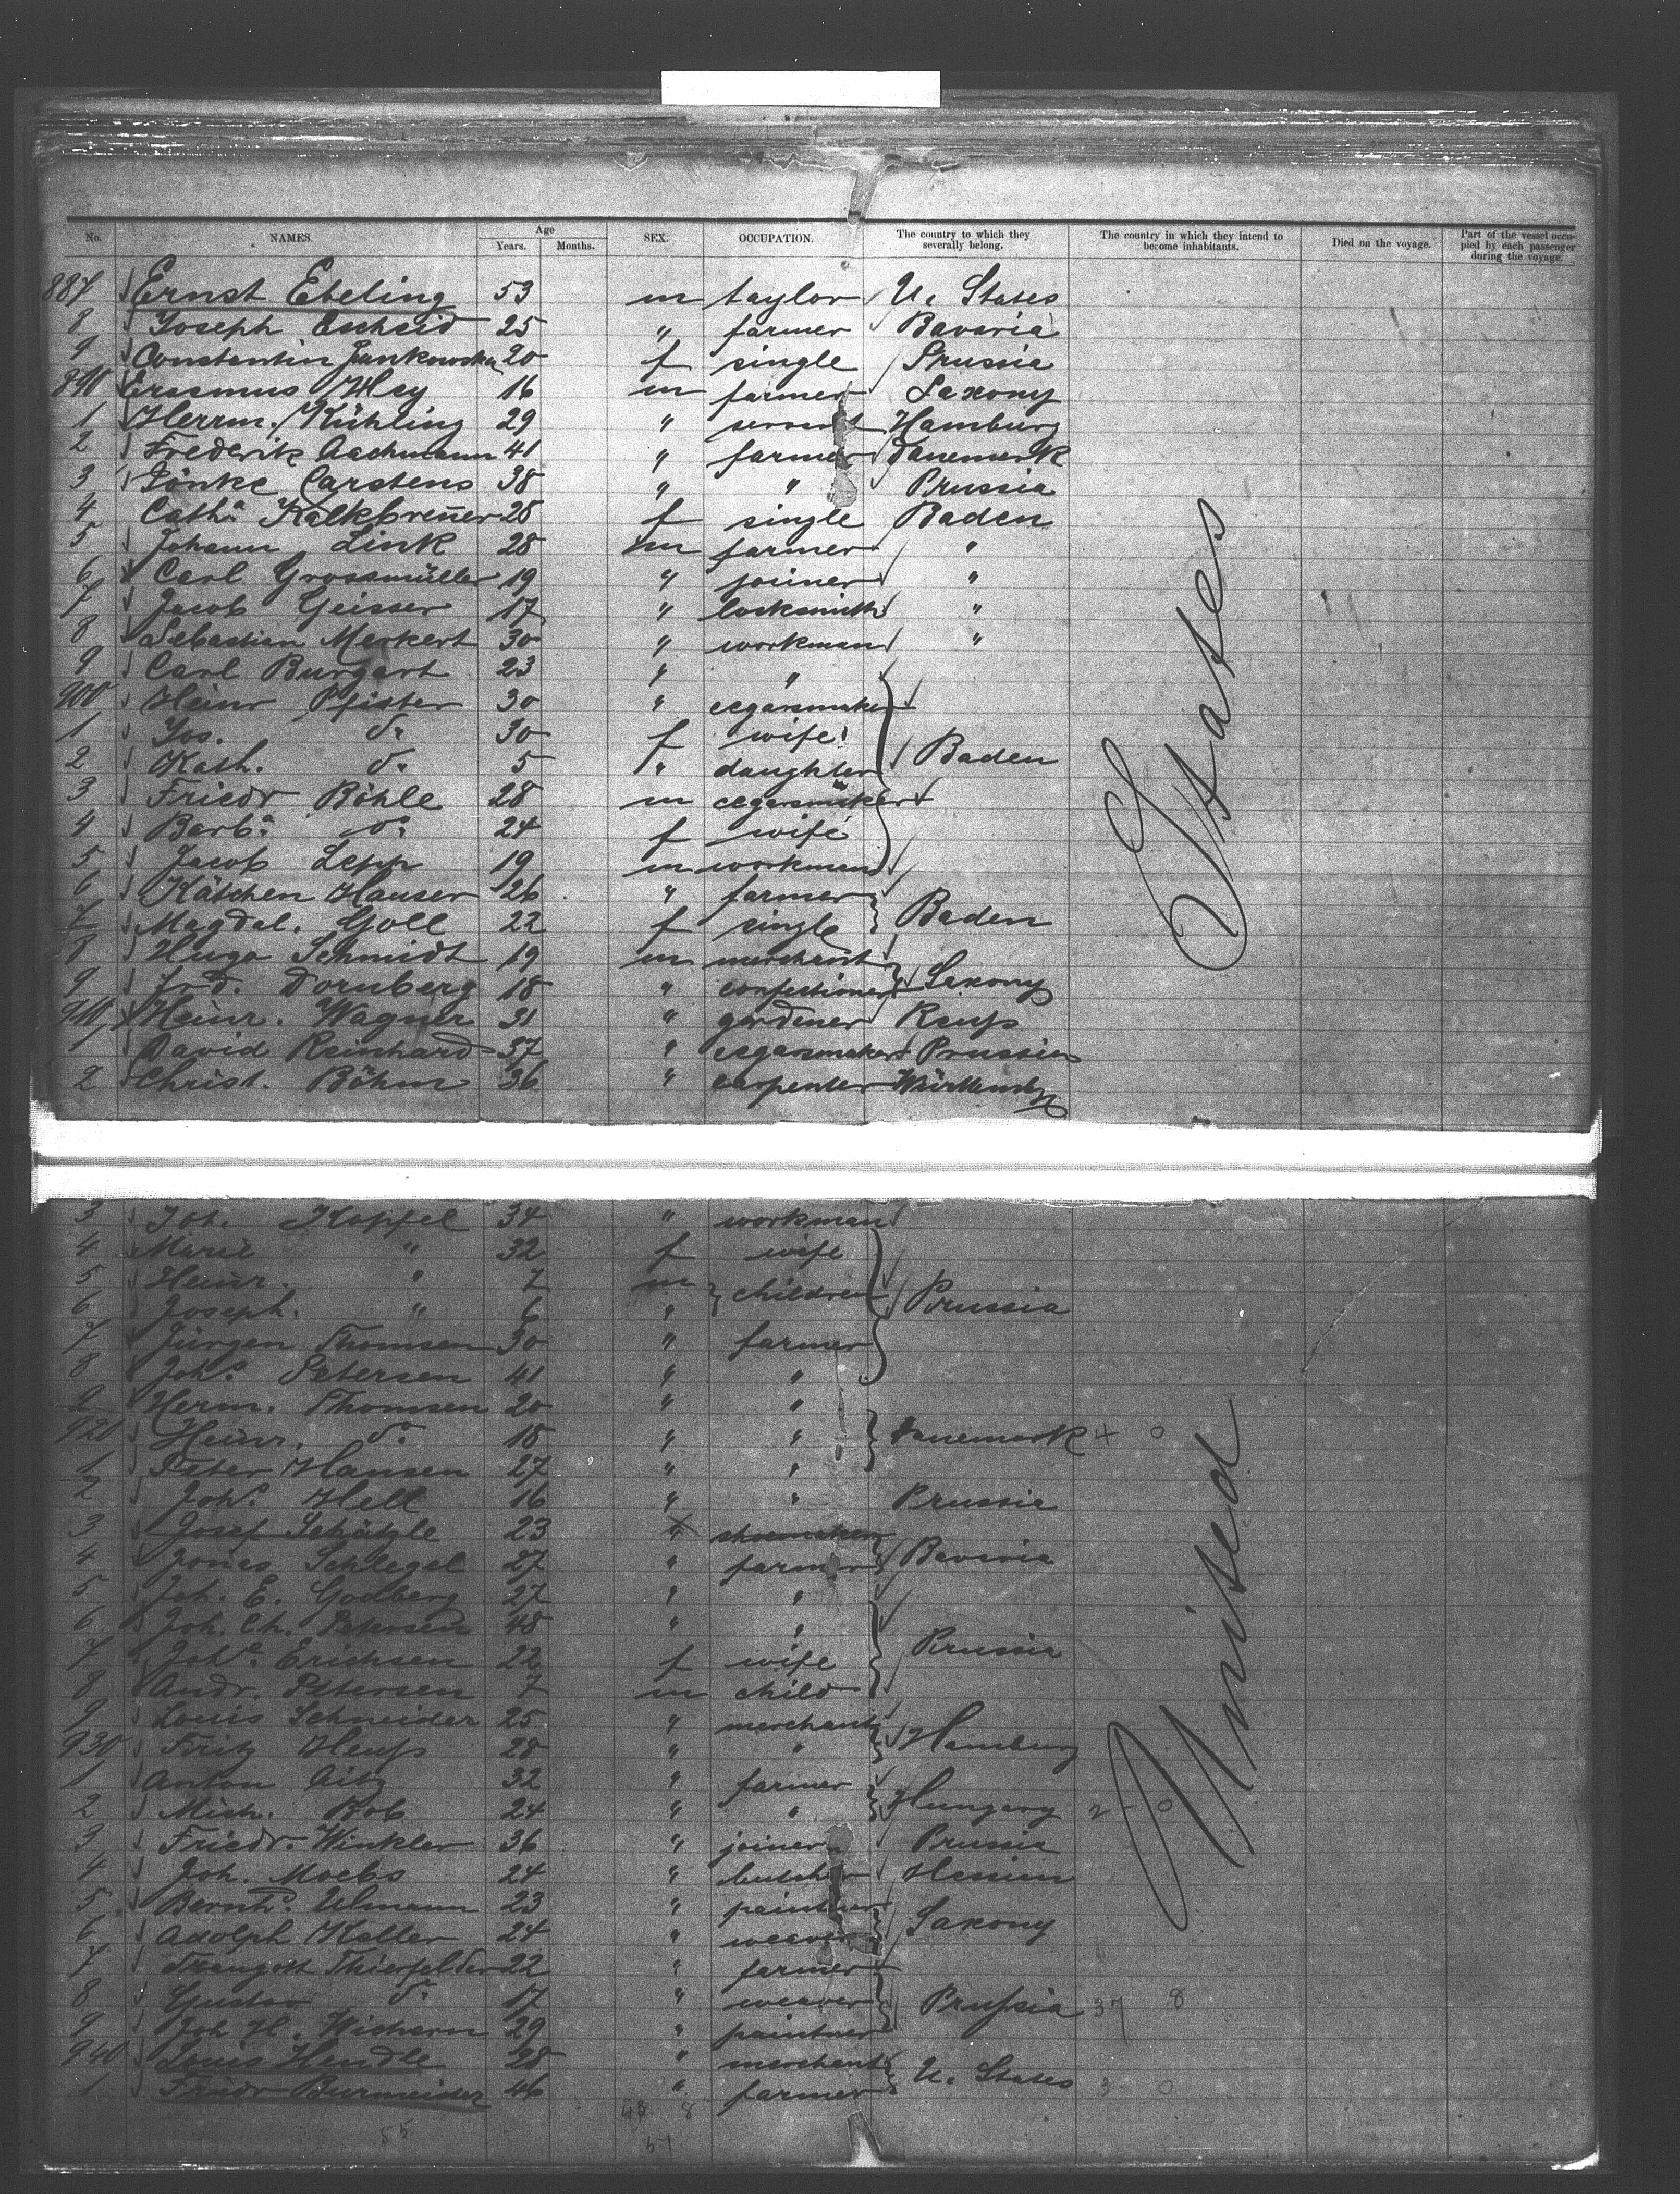 No. NAMES. Age Years. Months. SEX. OCCUPATION. The country to which they severally belong. The country in which they intend to become inhabitants. Died on the voyage. Part of the vessel occupied by each passenger during the voyage.
887 Ernst Ebeling 53 m taylor U. States
8 Joseph 25 " farmer Bavaria
9 Constantin Jankowska 20 f single Prussia
890 Erasmus Hey 16 m farmer Saxony
1 Herrm. Kühling 29 " servant Hamburg
2 Frederik Aachmann 41 " farmer Danemark
3 Sönke Carstens 38 " " Prussia
4 Cath.a Kalkbrenner 28 f single Baden
5 Johann Link 28 m farmer "
6 Carl Grossmüller 19 " joiner "
7 Jacob Geisser 17 " locksmith "
8 Sebastian Merkert 30 " workman "
9 Carl Burgart 23 " "
900 Heinr Pfister 30 " cegarsmaker
1 Jos. do 30 f wife
2 Kath. do 5 " daughter Baden
3 Friedr Böhle 28 m cegarsmaker
4 Barb.a do 24 f wife
5 Jacob Lepp 19 m workman
6 Kätchen Hauser 26 " farmer
7 Magdal. Goll 22 f single Baden
8 Hugo Schmidt 19 m merchant
9 Frd. Dornberg 18 " confectioner Saxony
910 Heinr. Wagner 31 " gardener Reuß
1 David Reinhard 37 " cegarsmaker Prussia
2 Christ. Böhm 36 " carpenter Württembg
3 Joh. Hopfel 34 " workman
4 Marie " 32 f wife
5 Heinr. " 7 m children
6 Joseph. " 6 " Prussia
7 Jürgen Thomsen 30 " farmer
8 Joh.s Petersen 41 " "
9 Herm. Thomsen 20 " "
920 Heinr. do 18 " " Danemark 4 0
1 Peter Hansen 27 " "
2 Joh.s Hell 16 " " Prussia
3 Josef Schätzle 23 " shoemaker
4 Jonas Schlegel 27 " farmer Bavaria
5 Joh. E. Godberg 27 " "
6 Joh. Ch. Petersen 48 " "
7 Joh.e Erichsen 22 f wife Prussia
8 Andr. Petersen 7 m child
9 Louis Schneider 25 " merchant
930 Fritz Heuß 28 " " Hamburg
1 Anton 32 " farmer
2 Mich. Bob 24 " " Hungary 2 0
3 Friedr. Winkler 36 " joiner Prussia
4 Joh. Moebs 24 " butcher Hessen
5 Bernh. Ulmann 23 " paintner
6 Adolph Keller 24 " weaver Saxony
7 Traugott Thierfelder 22 " farmer
8 Gustav do 17 " weaver Prußia 37 8
9 Joh H. Wichern 29 " paintner
940 Louis Hendle 28 " merchant
1 Friedr Burmeister 46 " farmer U. States 3 0
48 8
55
51
United States